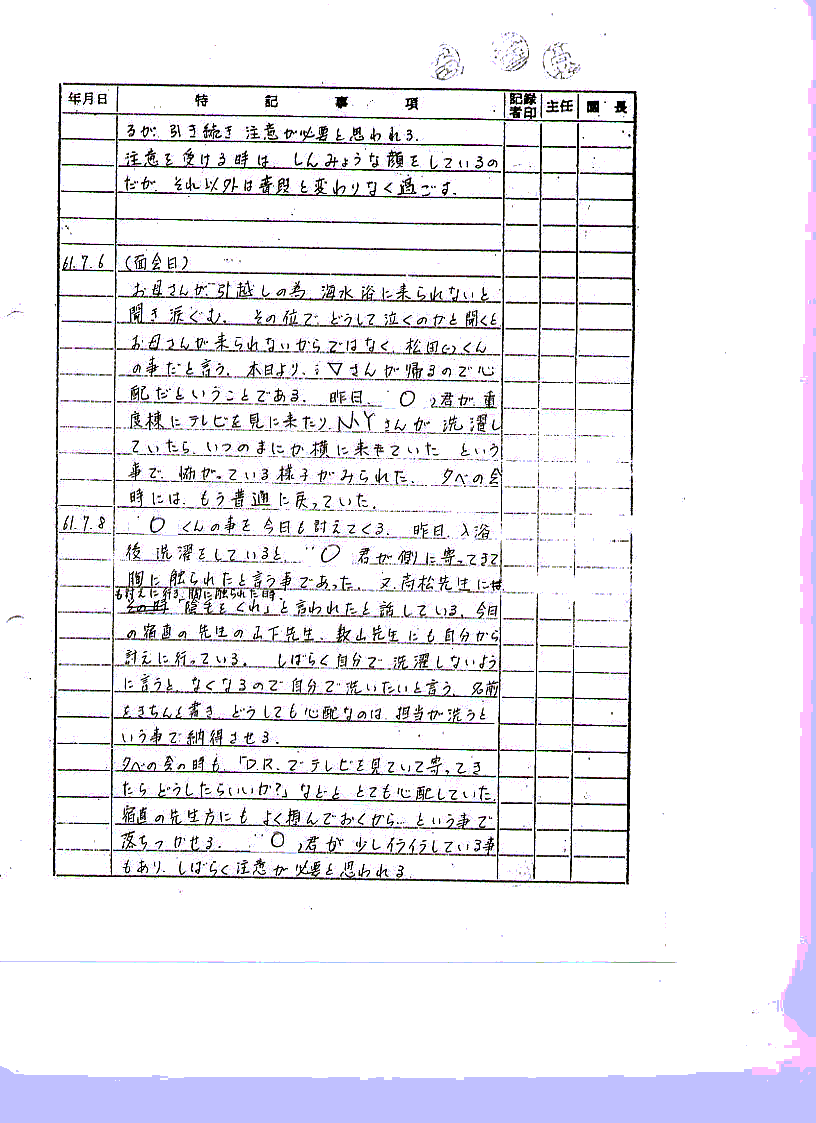 年月日 特記事項 記録者印 主任 園長
るが、引き続き 注意が必要と思われる。
注意を受ける時は、しんみょうな顔をしているの
だが、それ以外は普段と変わりなく過ごす。
61.7.6 (面会日)
お母さんが、引越しの為、海水浴に来られないと
聞き涙ぐむ。その位で、どうして泣くのかと聞くと
お母さんが来られないからではなく、松田 くん
の事だと言う。本日より、▽さんが帰るので心
配だということである。昨日、○君が、重
度棟にテレビを見に来たり、N.Yさんが洗濯し
ていたら、いつのまにか横に来ていた という
事で、怖がっている様子がみられた。夕べの会
時には、もう普通に戻っていた。
61.7.8 ○くんの事を今日も訴えてくる。昨日、入浴
後洗濯をしていると、○君が側に寄ってきて
胸に触られたと言う事であった。又、高松先生に
も訴えに行き、胸に触られた時、
その時「陰毛をくれ」と言われたと話している。今日
の宿直の先生の山下先生、数山先生にも自分から
訴えに行っている。しばらく自分で洗濯しないよう
に言うと、なくなるので自分で洗いたいと言う。名前
をきちんと書き、どうしても心配なのは、担当が洗うと
いう事で納得させる。
夕べの会の時も、「D.R.でテレビを見ていて寄ってき
たらどうしたらいいか?」などと とても心配していた。
宿直の先生方にも よく頼んでおくから… という事で
落ちつかせる。○君が少しイライラしている事
もあり、しばらく注意が必要と思われる。